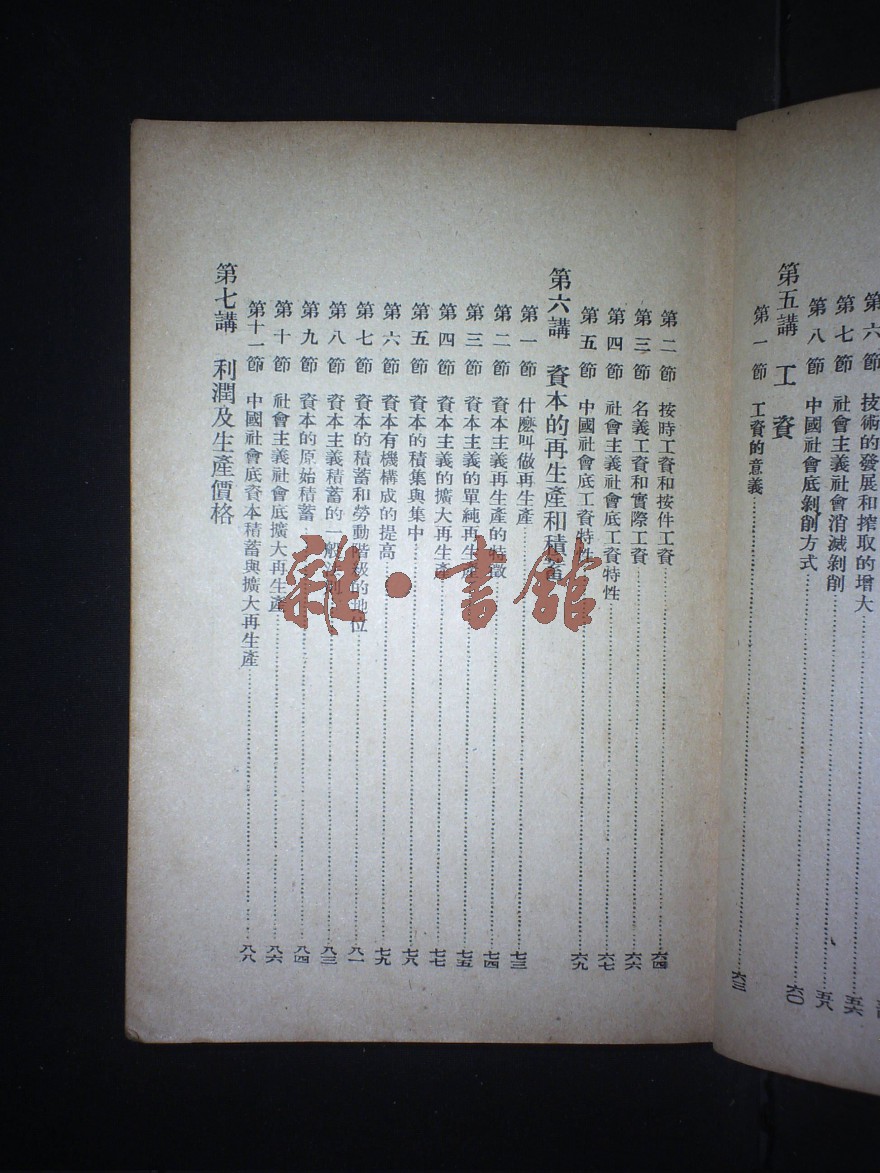 第六節 技術的發展和搾取的增大
第七節 社會主義社會消滅剝削……五六
第八節 中國社會底剝削方式……五八
第五講 工資……六〇
第一節 工資的意義……六三
第二節 按時工資和按件工資……六四
第三節 名義工資和實際工資……六六
第四節 社會主義社會底工資特性……六七
第五節 中國社會底工資特性……六九
第六講 資本的再生產和積蓄
第一節 什麼叫做再生產……七三
第二節 資本主義再生產的特徵……七四
第三節 資本主義的單純再生產……七五
第四節 資本主義的擴大再生產……七七
第五節 資本的積集與集中……七八
第六節 資本有機構成的提高……七九
第七節 資本的積蓄和勞動階級的地位……八一
第八節 資本主義積蓄的一般法則……八三
第九節 資本的原始積蓄……八四
第十節 社會主義社會底擴大再生產……八六
第十一節 中國社會底資本積蓄與擴大再生產……八八
第七講 利潤及生產價格
雜·書館